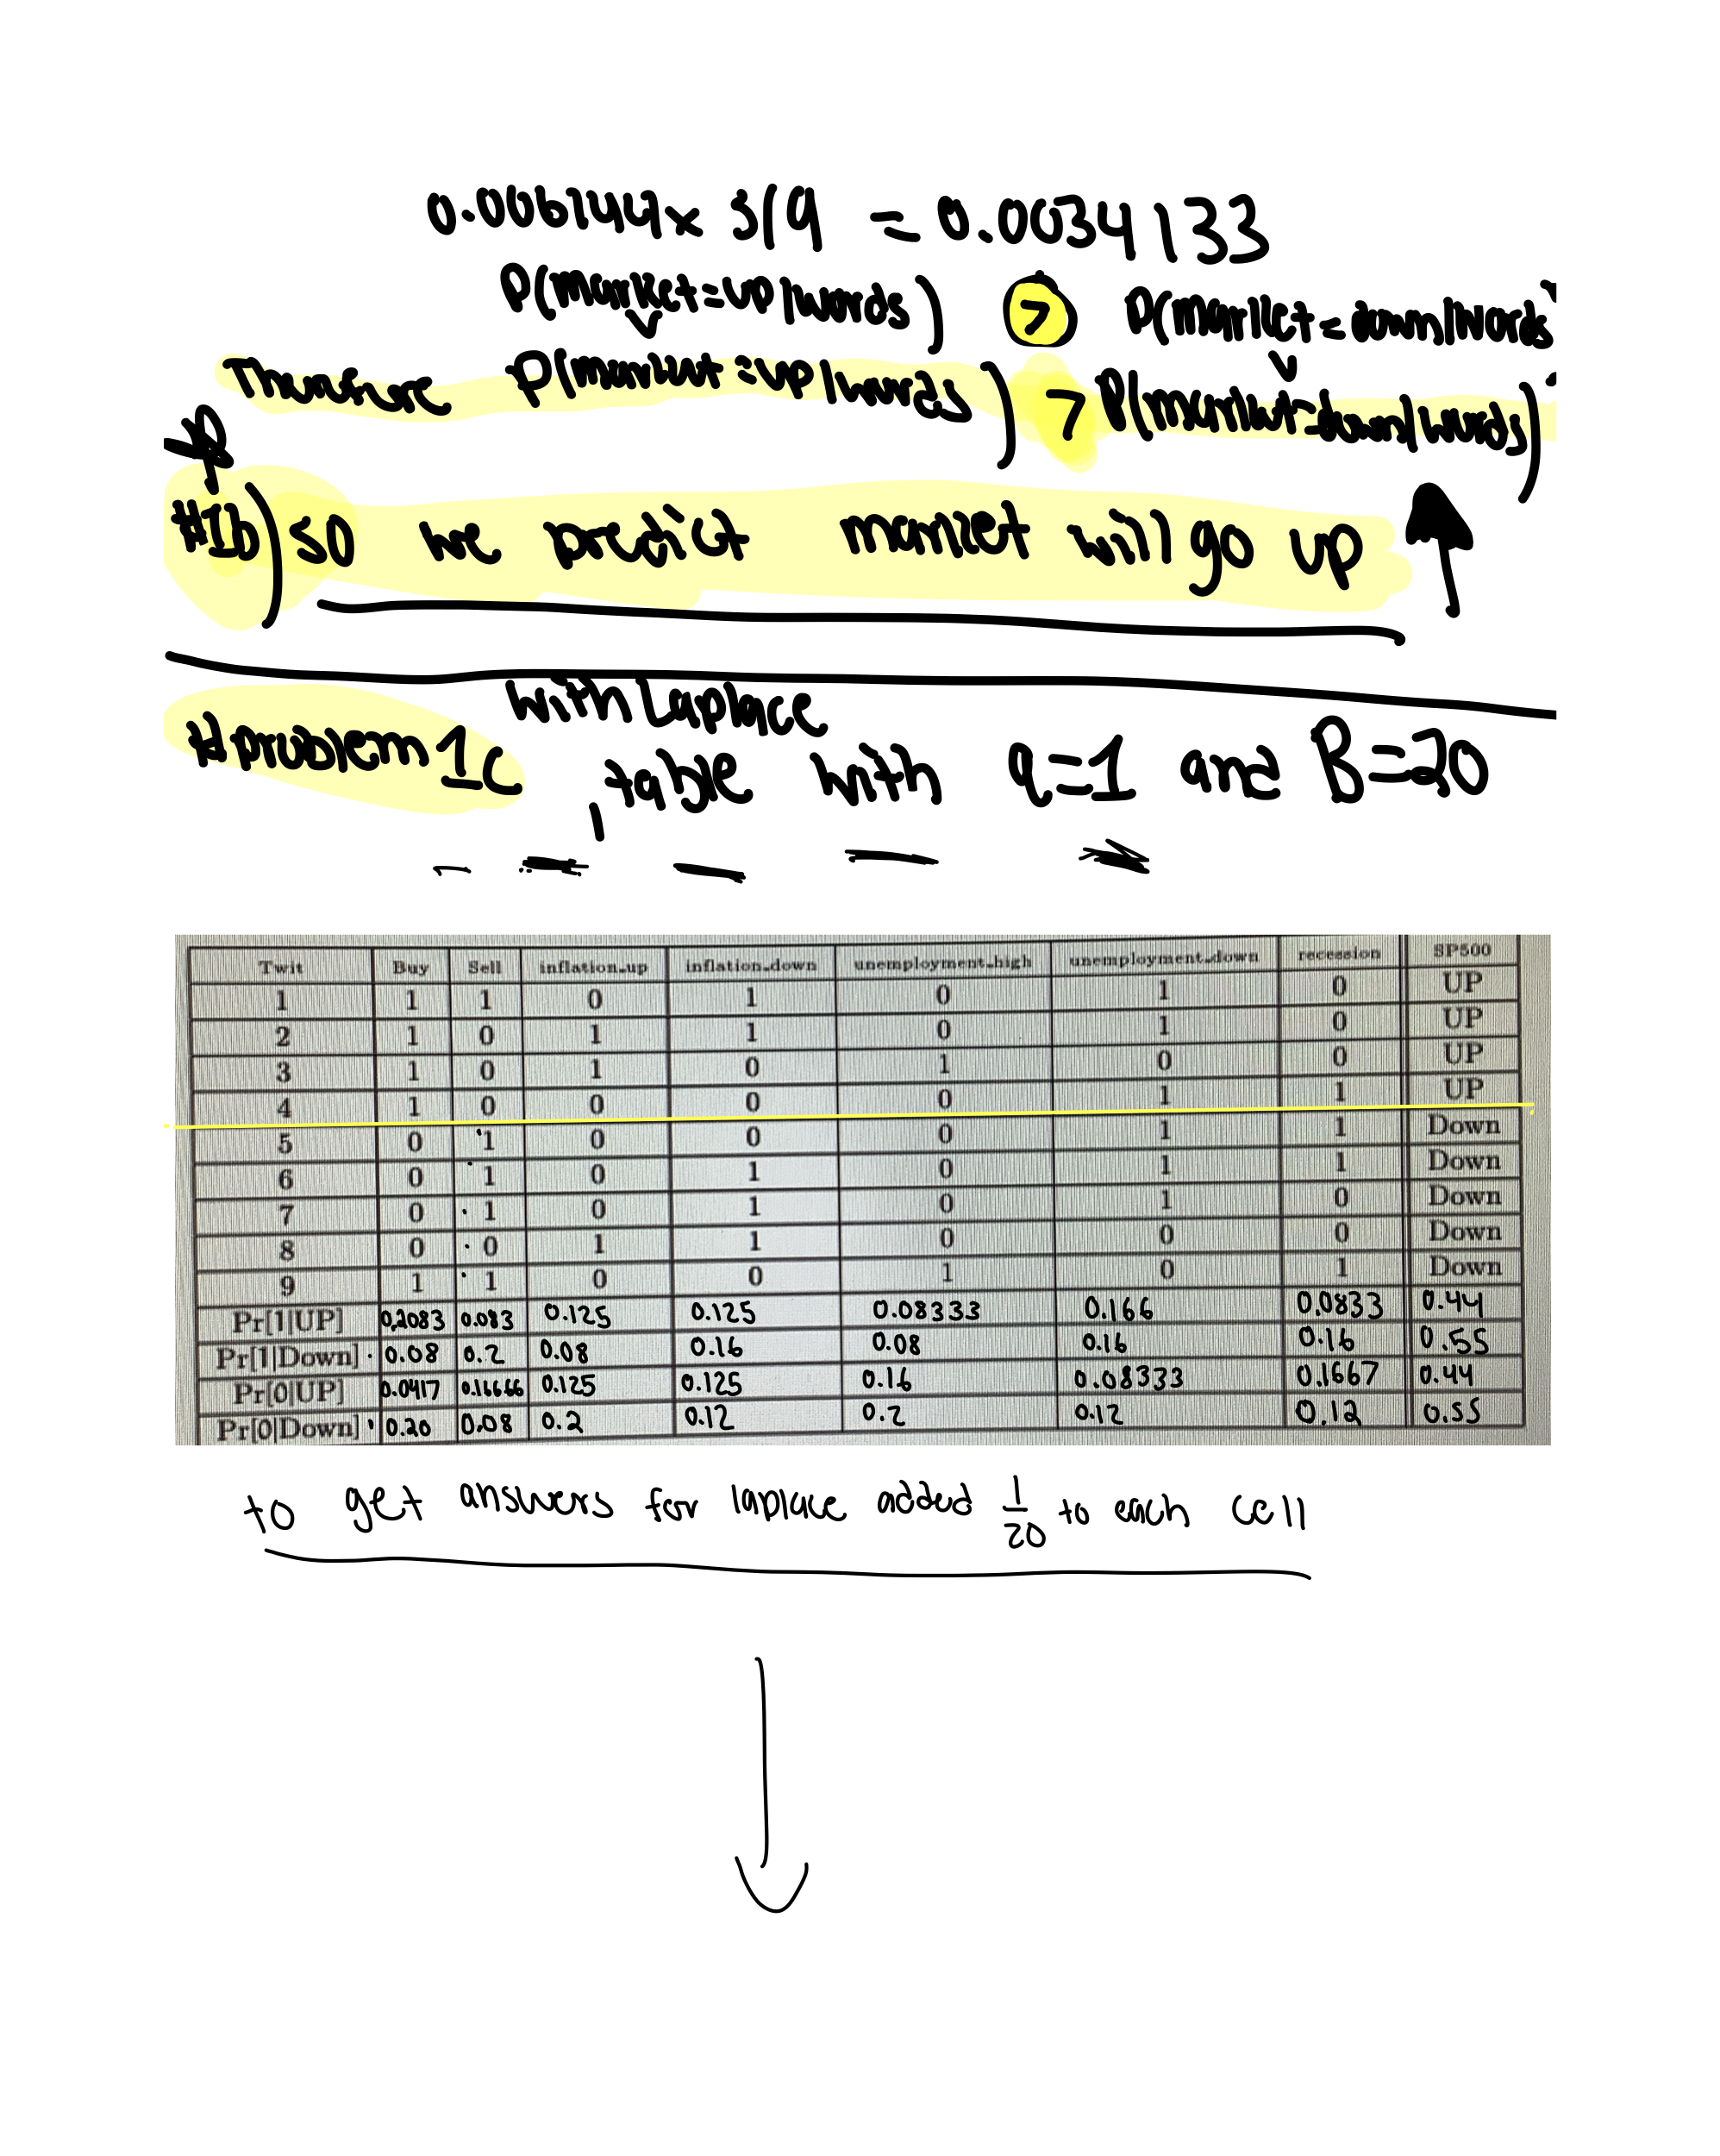 0.006144 x 5/9 = 0.0034133
P(market=up|words) > P(market=down|words)
Therefore P(market=up|words) > P(market=down|words)
#1b) so we predict market will go up
with Laplace
#problem 1c, table with a=1 and B=20
Twit Buy Sell inflation_up inflation_down unemployment_high unemployment_down recession SP500
1 1 1 0 1 0 1 0 UP
2 1 0 1 1 0 1 0 UP
3 1 0 1 0 1 0 0 UP
4 1 0 0 0 0 1 1 UP
5 0 1 0 0 0 1 1 Down
6 0 1 0 1 0 1 1 Down
7 0 1 0 1 0 1 0 Down
8 0 0 1 1 0 0 0 Down
9 1 1 0 0 1 0 1 Down
Pr[1|UP] 0.2083 0.083 0.125 0.125 0.08333 0.166 0.0833 0.44
Pr[1|Down] 0.08 0.2 0.08 0.16 0.08 0.16 0.16 0.55
Pr[0|UP] 0.0417 0.16666 0.125 0.125 0.16 0.08333 0.1667 0.44
Pr[0|Down] 0.20 0.08 0.2 0.12 0.2 0.12 0.12 0.55
to get answers for laplace added 1/20 to each cell